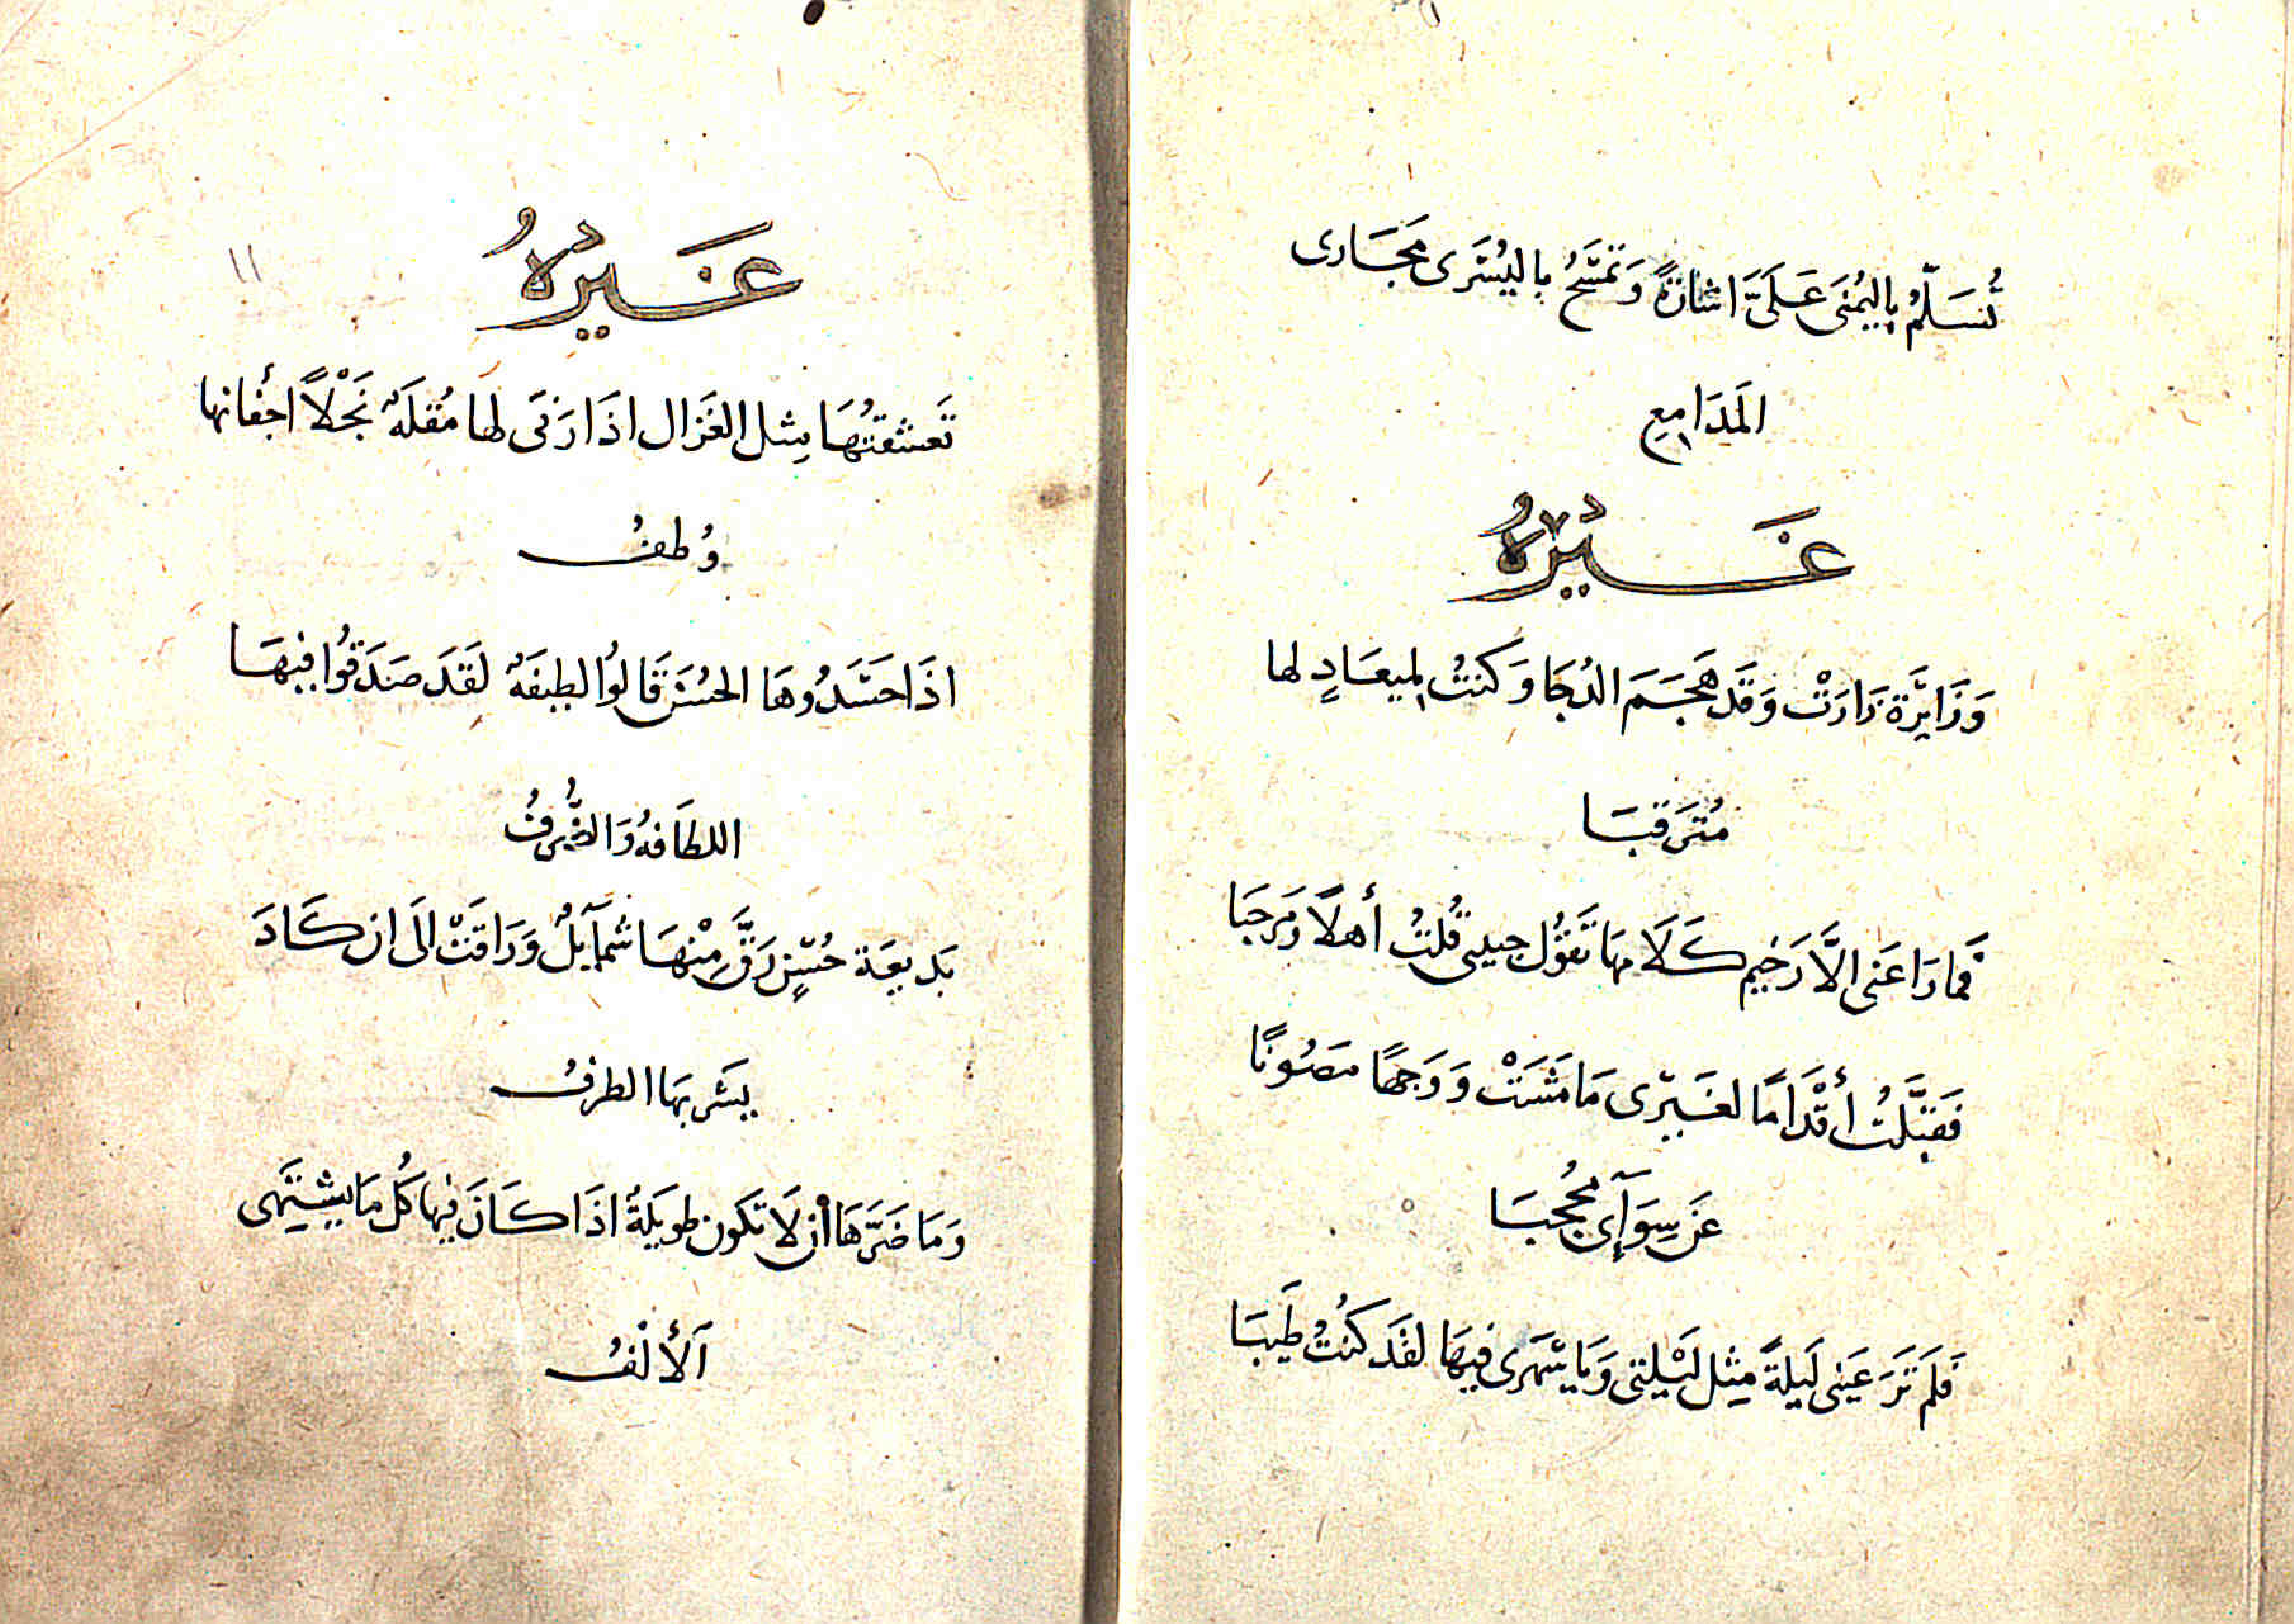 تُسَلّمُ بِاليُمنَى عَلَىَّ اشارةً وَتمَسَّحُ باليُسْرَى مَجَارى
المَدَامِعِ
غَيْرُهُ
وَزَايِرَة زَارَتْ وَقَد هَجَمَ الدُجَا وَكنتُ لميعَادٍ لها
مُترَقبَا
فَمَا رَاعَنى الَّا رَخيم كَلَامهَا تَقوُل حبيبى قُلتُ أهلًا وَمرحبَا
فَقبَّلتُ أقْدَامًا لغَيرى مَا مَشَتْ وَوَجهًا مصُونًا
عَن سِوَآىَ مُحجبَا
فَلَم تَرَ عَينى لَيلةً مِثل لَيْلتى وَيَا سَهَرى فيهَا لقَد كنُتُ طَيبَا
١١
غَيرُهُ
تَعشقتُهَا مِثل الغَزال اذَا رَنَى لها مُقلَةٌ نَجْلًا أجفانها
وُطفُ
اذَا حَسَدُوهَا الحُسْنَ قَالوُا لطيفَةٌ لَقَد صَدَقوُا فيهَا
اللطَافهُ وَالظُرفُ
بَديعَة حُسْنٍ رَقَّ مِنْهَا شَمآيلٌ وَرَاقَتْ الَى ان كَادَ
يشَربهَا الطرفُ
وَمَا ضَرَّهَا أن لَا تكون طويَلةً اذَا كَانَ فيها كُل مَا يشتَهى
اَلأَلْفُ